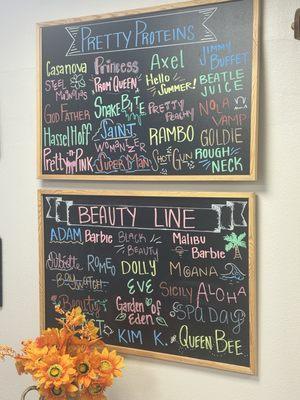 PRETTY PROTEINS
Casanova Princess AXEL JIMMY BUFFET
STEEL MAGNOLIAS PROM QUEEN! Hello Summer! BEATLE JUICE
GOD FATHER SNAKE BITE PRETTY Peachy NOLA VAMP
Hassel Hoff SAINT RAMBO GOLDIE
Pretty PINK WOMAN SHOT GUN ROUGH NECK
SUPER MAN
BEAUTY LINE
ADAM Barbie BLACK BEAUTY Malibu Barbie
Juliette ROMEO DOLLY MOANA
BAYWATCH EVE SICILY ALOHA
Beauty Garden OF EDEN SPA DAY
KIM K. QUEEN BEE